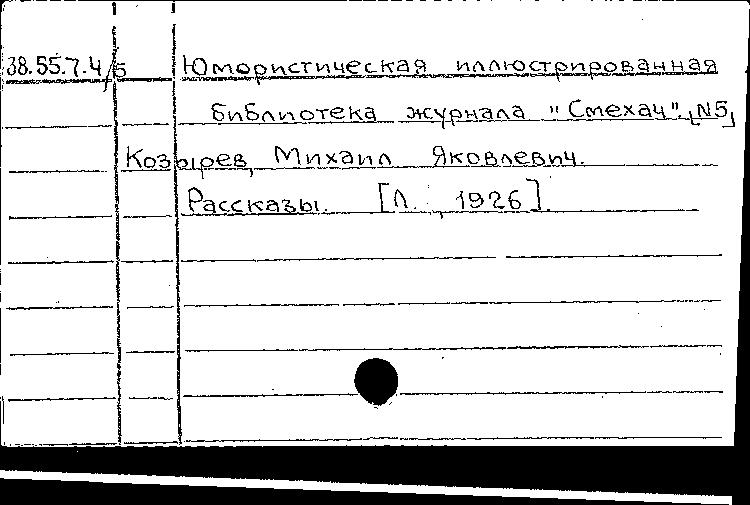 38.55.7.4/5 Юмористическая иллюстрированная
библиотека журнала "Смехач". [N5]
Козырев, Михаил Яковлевич.
Рассказы. [Л., 1926].